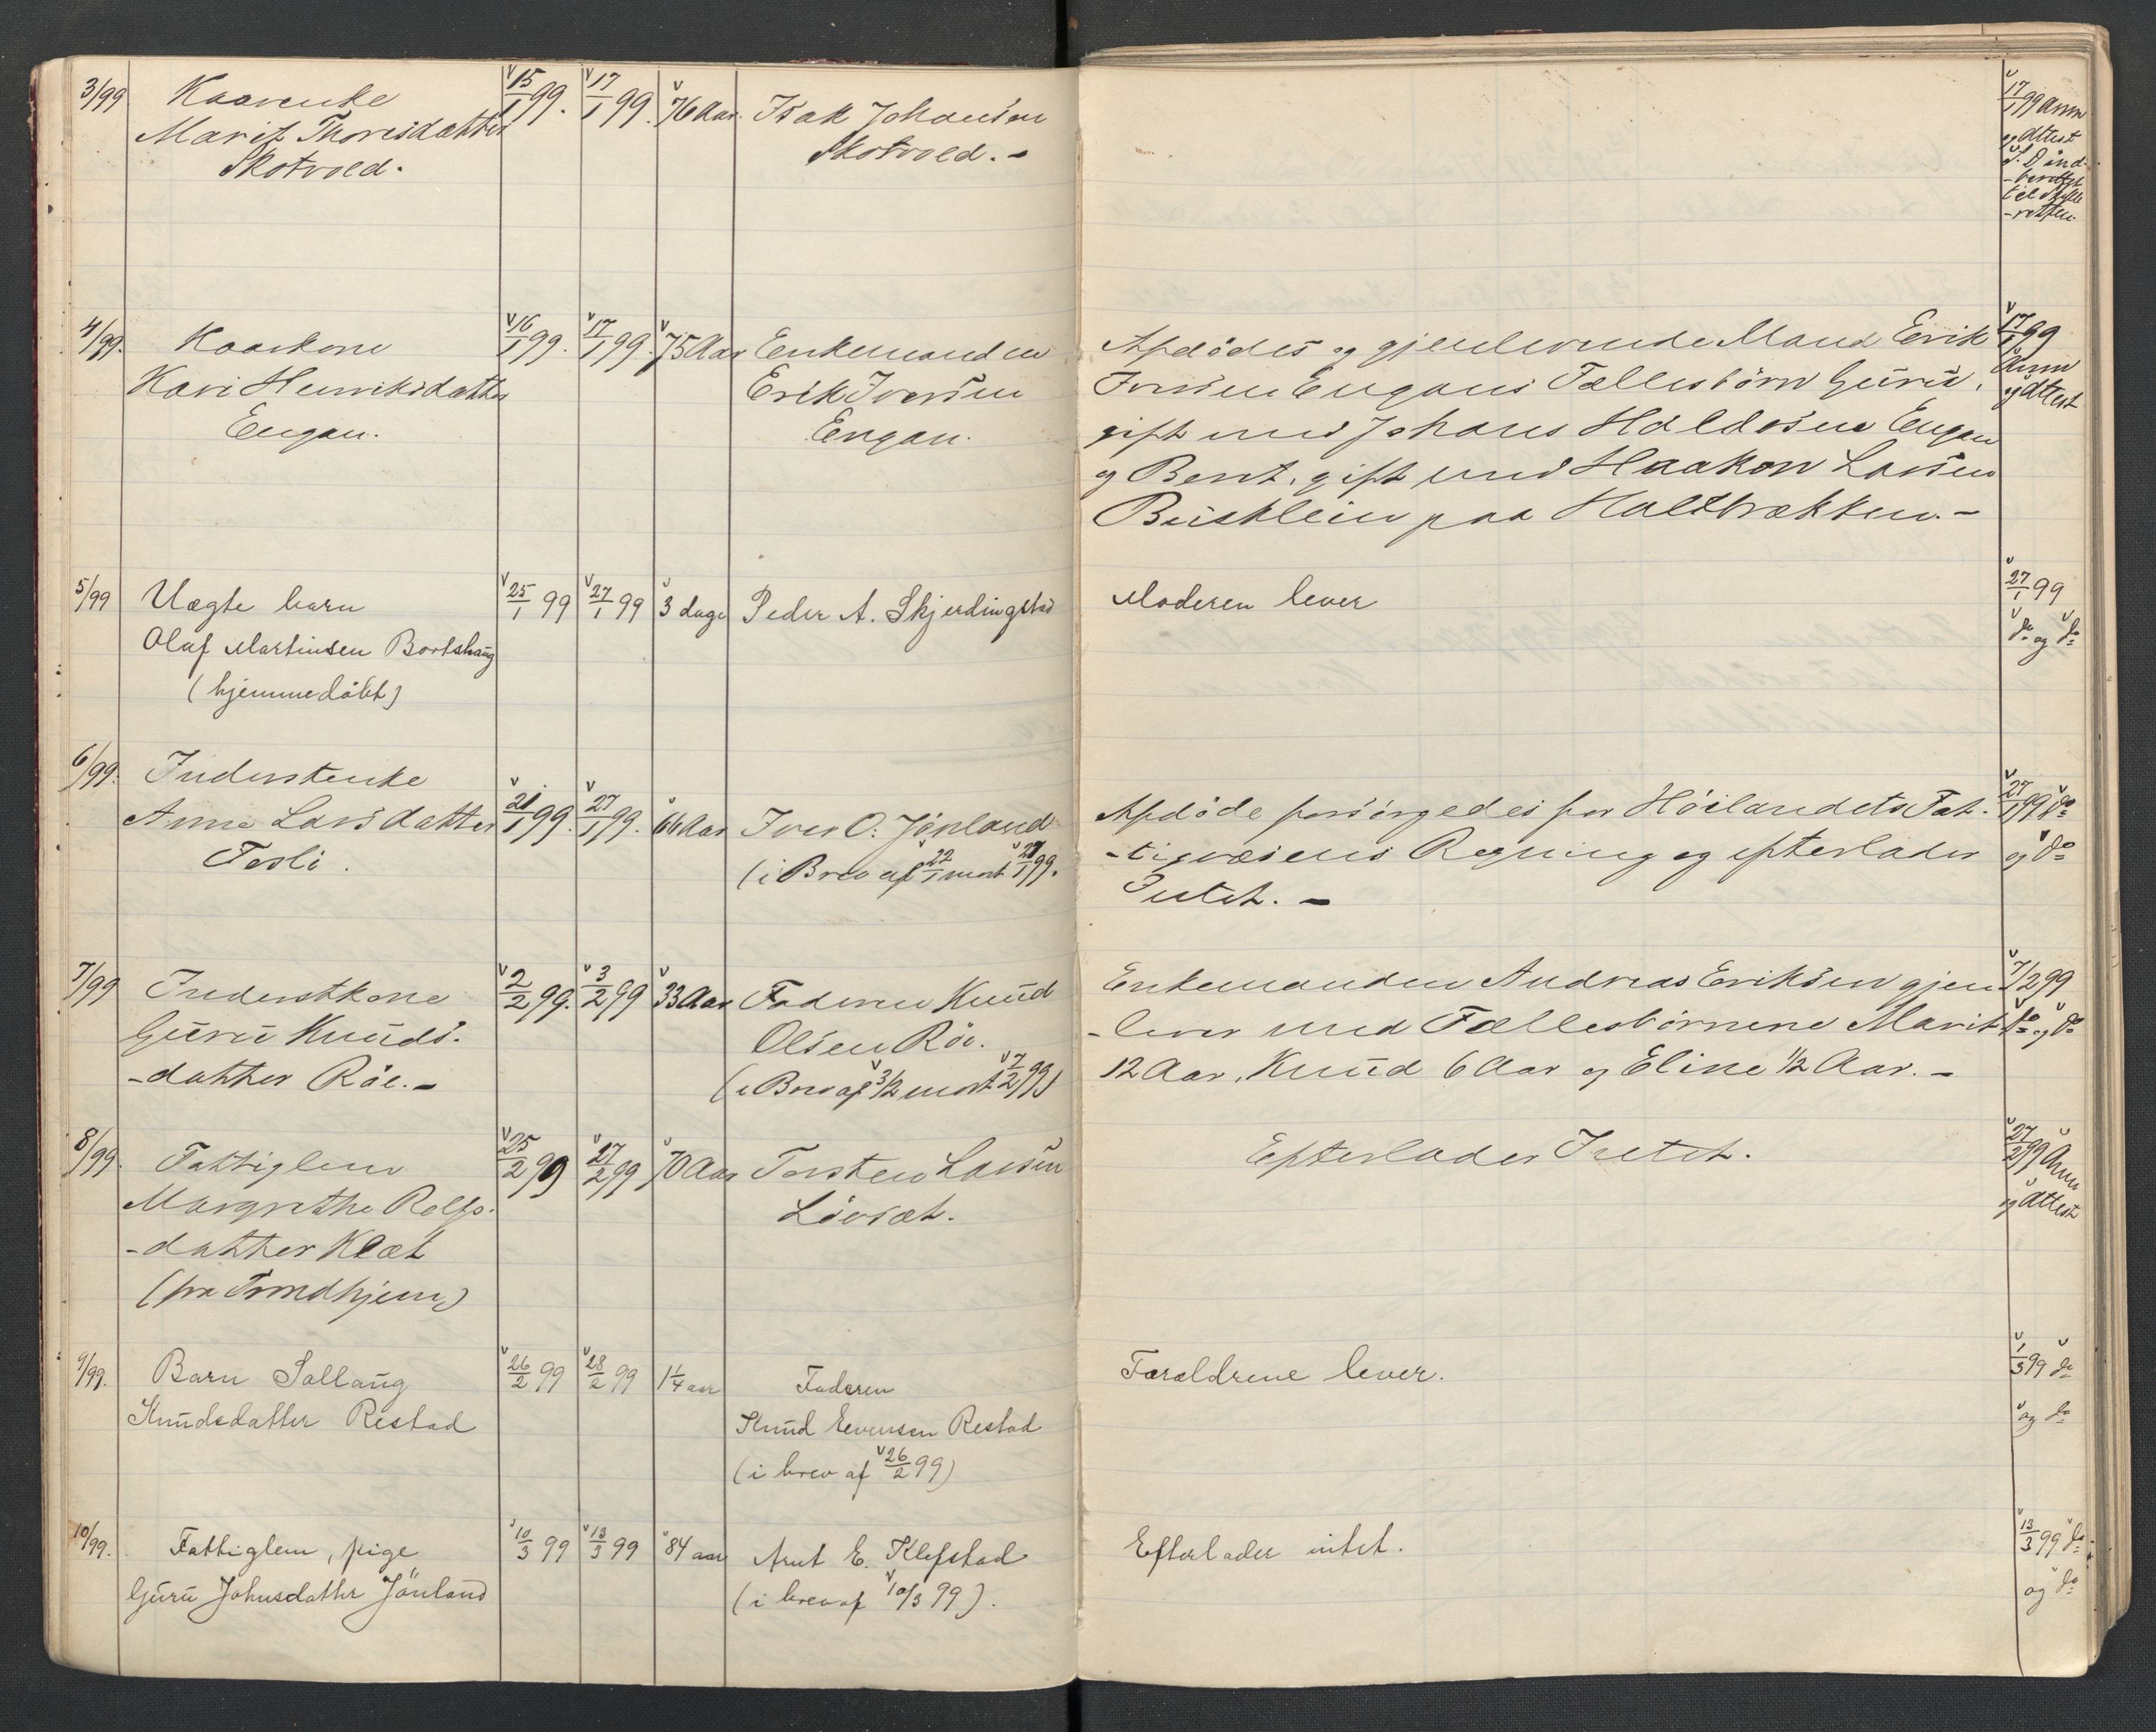 3/99
Kaarenke
Marit Thoresdatter
Skotvold.
15/1 99.
17/1 99.
76 Aar.
Isak Johansen
Skotvold. -
17/1 99 Anm
og Attest
S. D ind-
-berettet
til Skifte
-retten
4/99.
Kaarkone
Kari Henriksdatter
Engan.
16/1 99.
17/1 99.
75 Aar
Enkemanden
Erik Iversen
Engan.
Afdødes og gjenlevende Mand Erik
Iversen Engans Fællesbørn Guru,
gift med Johans Haldosen Engan
og Berit, gift med Haakon Larsen
paa Haltbrækken. -
17/1 99
Anm
og Attest
5/99
Uægte barn
Olaf Martinsen Bortshaug
(hjemmedøbt)
25/1 99
27/1 99
3 dage
Peder A. Skjerdingstad
Moderen lever
27/1 99
do og do
6/99.
Inderstenke
Anne Larsdatter
Tesli.
21/1 99.
27/1 99.
66 Aar
Iver O. Jønland
(i Brev af 22/1 mort 27/1 99.
Afdøde forsørgedes for Høilandets Fat-
-tigvæsens Regning og efterlader
Intet. -
27/1 99 do
og do
7/99
Inderstkone
Guru Knuds-
-datter Røe. -
2/2 99.
3/2 99
33 Aar
Faderen Knud
Olsen Røe.
(i Brev af 3/2 mort 7/2 99)
Enkemanden Andreas Eriksen gjen-
-lever med Fællesbørnene Marit
12 Aar, Knud 6 Aar og Eline 1/2 Aar. -
7/2 99
do og do
8/99.
Fattiglem
Margrethe Rolfs-
-datter Klæt
(fra Trondhjem)
25/2 99
27/2 99
70 Aar
Torsten Larsen
Løvset.
Efterlader Intet.
27/2 99 Anm
og Attest
9/99.
Barn Sollaug
Knudsdatter Restad
26/2 99
28/2 99
1 1/4 aar
Faderen
Knud Evensen Restad
(i brev af 26/2 99)
Forældrene lever.
1/3 99 do
og do
10/99.
Fattiglem, pige
Guru Johnsdatter Jönland
10/3 99
13/3 99
84 aar
Arnt E. Klefstad
(i brev af 10/3 99).
Efterlader intet.
13/3 99 do
og do